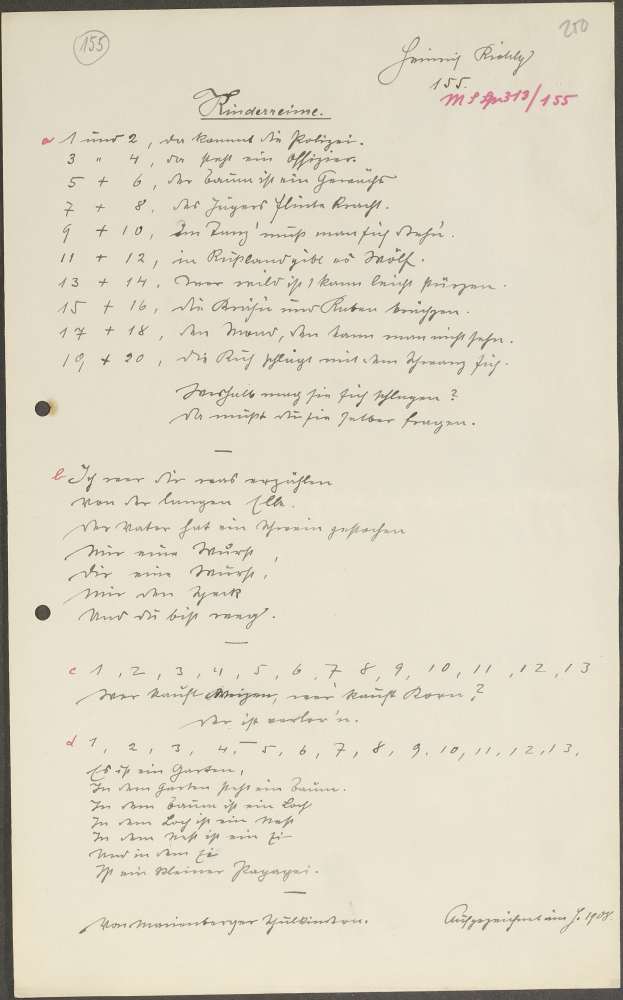 155
250
Heinrich Richly
155.
MS Spr 313/155
Kinderreime.
a 1 und 2, da kommt die Polizei.
3 " 4, da steht ein Offizier.
5 + 6, der Baum ist ein Gewächs
7 + 8, des Jägers Flinte kracht.
9 + 10, Im Tanz' muß man sich drehn.
11 + 12, in Rußland gibt es Wölf.
13 + 14, wer wild ist, kann leicht stürzen.
15 + 16, die Krähn und Raben krächzen.
17 + 18, den Mond, den kann man nicht sehn.
19 + 20, die Kuh schlägt mit dem Schwanz sich.
Weshalb mag sie sich schlagen?
Da müßt du sie selber fragen.
b Ich wer dir was erzählen
Von der langen Elle.
Der Vater hat ein Schwein gestochen
Mir eine Wurst,
Dir eine Wurst,
Mir den Speck
Und du bist weg.
c 1, 2, 3, 4, 5, 6, 7, 8, 9, 10, 11, 12, 13
Wer kauft Weizen, wer kauft Korn?
Der ist verlor'n.
d 1, 2, 3, 4, 5, 6, 7, 8, 9, 10, 11, 12, 13,
Es ist ein Garten,
In dem Garten steht ein Baum.
In dem Baum ist ein Loch
In dem Loch ist ein Nest
In dem Nest ist ein Ei
Und in dem Ei
Ist ein kleiner Papagei.
Von Marienberger Schulkindern.
Aufgezeichnet im J. 1908.